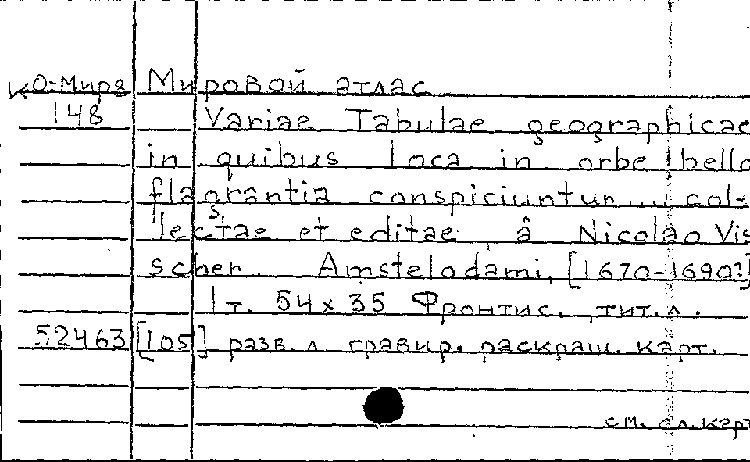 КО:Мира Мировой атлас
148 Variae Tabulae geographicae
in quibus loca in orbe bello
flagrantia conspiciuntur ... col-
lectae et editae â Nicolao Vis
scher. Amstelodami, [1670-1690?]
1 т. 54 x 35 Фронтис., тит. л.
52463 [105] разв. л. гравир. раскраш. карт.
см. сл. карт